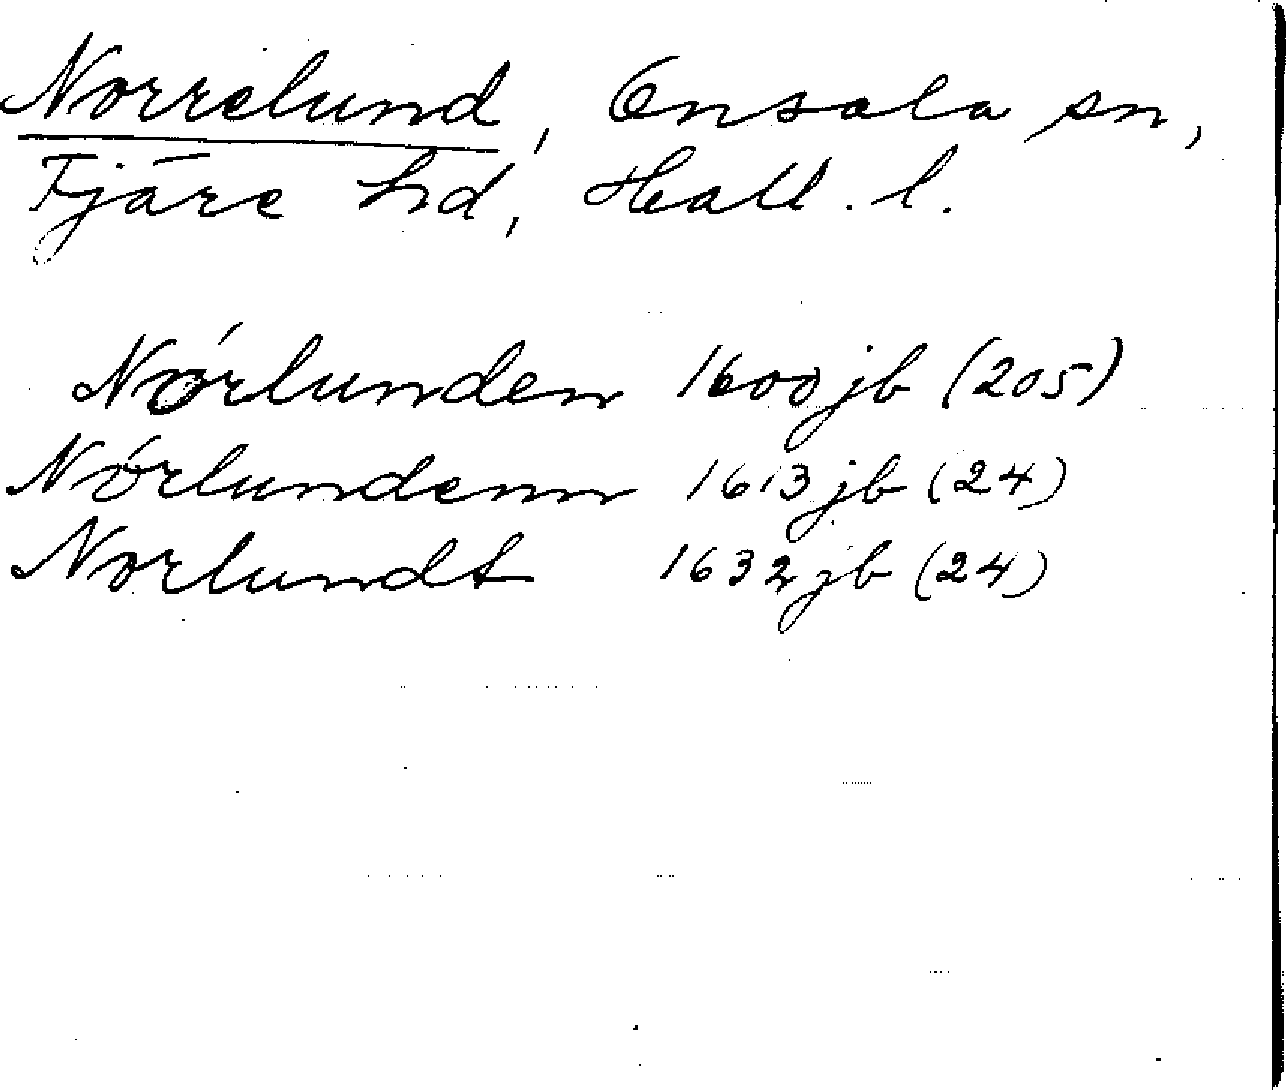 Norrelund, Onsala sn,
Fjäre hd, Hall. l.
Nórlunden 1600 jb (205)
Nórlundenn 1613 jb (24)
Norlundt 1632 jb (24)